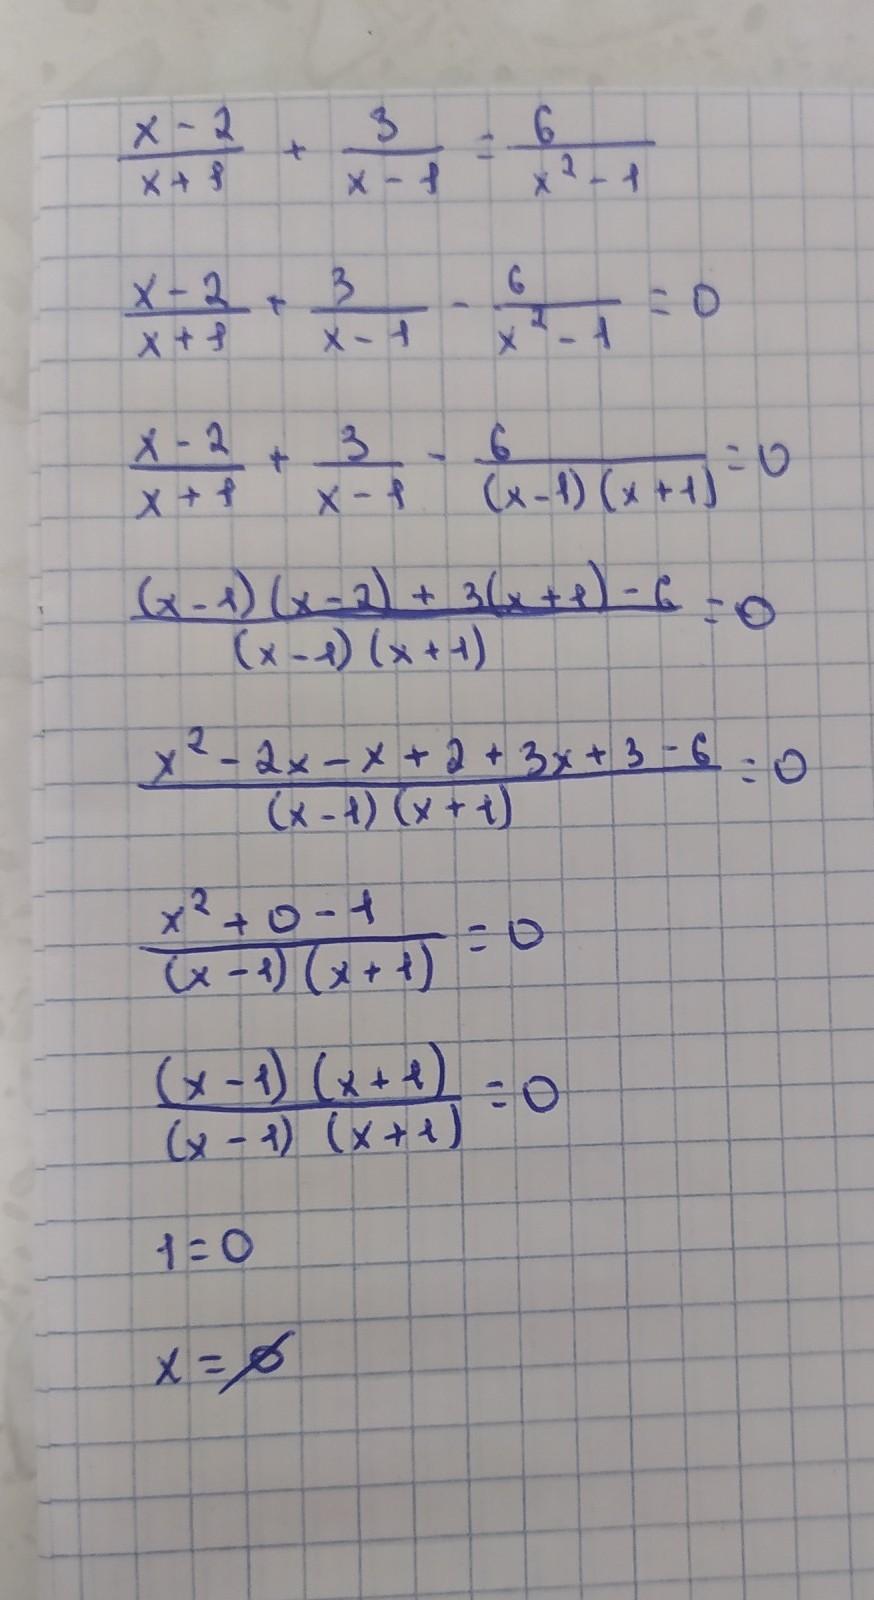 (x-2)/(x+1) + 3/(x-1) = 6/(x²-1)
(x-2)/(x+1) + 3/(x-1) - 6/(x²-1) = 0
(x-2)/(x+1) + 3/(x-1) - 6/((x-1)(x+1)) = 0
((x-1)(x-2)+3(x+1)-6)/((x-1)(x+1)) = 0
(x²-2x-x+2+3x+3-6)/((x-1)(x+1)) = 0
(x²+0-1)/((x-1)(x+1)) = 0
((x-1)(x+1))/((x-1)(x+1)) = 0
1=0
x=∅